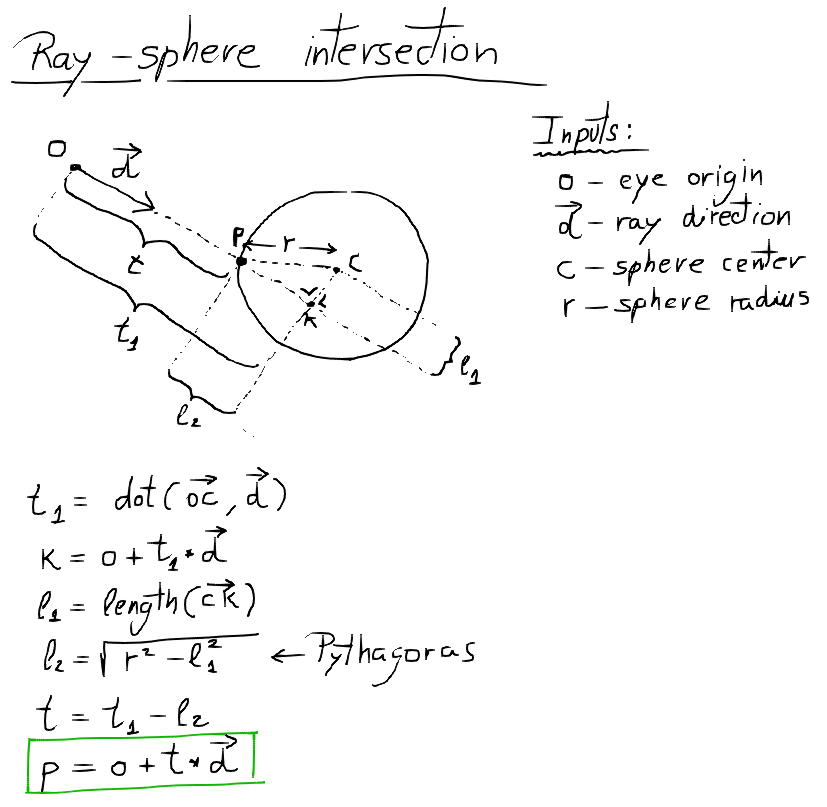 Ray-sphere intersection
Inputs:
o - eye origin
d⃗ - ray direction
c - sphere center
r - sphere radius
o
d⃗
P
r
c
t
k
t₁
l₁
l₂
t₁ = dot(oc⃗, d⃗)
k = o + t₁ * d⃗
l₁ = length(ck⃗)
l₂ = √(r² - l₁²) ← Pythagoras
t = t₁ - l₂
p = o + t * d⃗